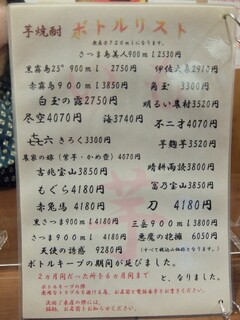 芋焼酎 ボトルリスト
表示金720mlになります。
さつま島美人900ml2530円
黒霧島25°900ml 2750円 伊佐大泉2910円
赤霧島900ml3850円 角玉 3300円
白玉の露2750円 明るい農村3520円
尽空4070円 海3740円 不二才4070円
㐂六 きろく3300円 芋麹芋3520円
農家の嫁(紫芋・かめ壺)4070円
吉兆宝山3850円 晴耕雨読3800円
もぐら4180円 富乃宝山3850円
赤兎馬 4180円 刀 4180円
黒さつま900ml4180円 三岳900ml3800円
さつま900ml4180円 悪魔の抱擁 6050円
天使の誘惑 9280円 (すべて税込み価格となります)
ボトルキープの期間が延びました。
2ヵ月間だった所を6ヵ月間まで と、なりました。
ボトルキープの際に